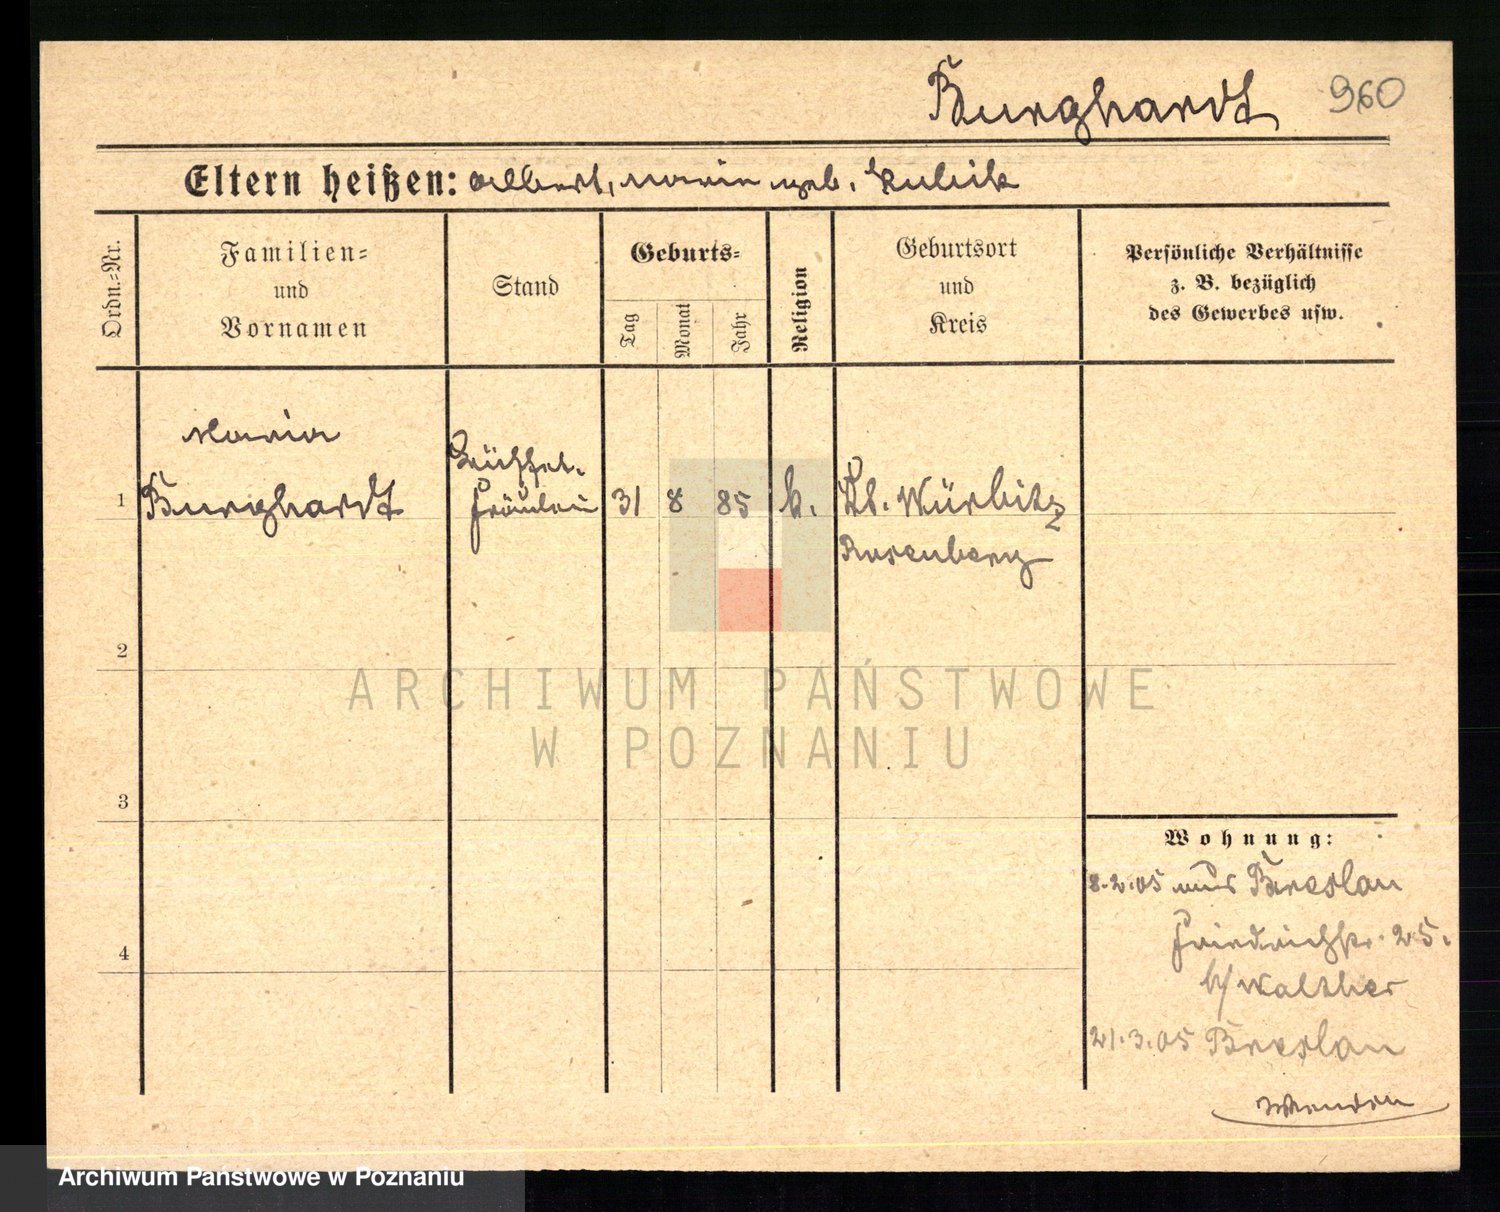 Burghardt 960
Eltern heißen: Albert, Marie geb. Kubik
Ordn.=Nr.
Familien=
und
Vornamen
Stand
Geburts=
Tag
Monat
Jahr
Religion
Geburtsort
und
Kreis
Persönliche Verhältnisse
z. B. bezüglich
des Gewerbes usw.
Maria
1 Burghardt
Büffet-
fräulein
31 8 85 k.
Kl. Würbitz
Rosenberg
2
ARCHIWUM PAŃSTWOWE
W POZNANIU
3
4
Wohnung:
8.2.05 aus Breslau
Friedrichstr. 25.
b/ Walther
21.3.05 Breslau
Wenden
Archiwum Państwowe w Poznaniu